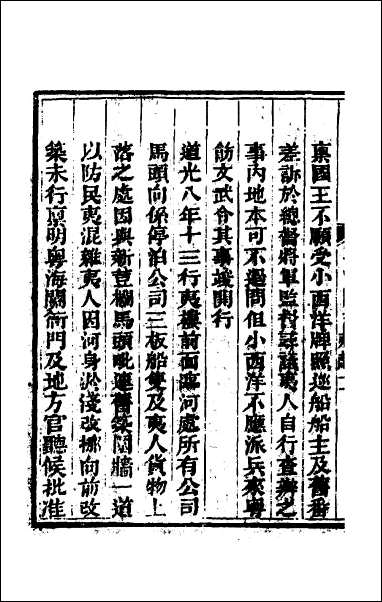 稟國王不願受小西洋牌照逐船船主及舊番
差訴於總督將軍監督謂該夷人自行查辦之
事內地本可不過問但小西洋不應派兵來粵
飭文武令其事竣開行
道光八年十三行夷樓前面臨河處所有公司
馬頭向係停泊公司三板船隻及夷人貨物上
落之處因與新荳欄馬頭毗連舊築闊牆一道
以防民夷混雜夷人因河身淤淺改挪向前改
築未行稟明粵海關衙門及地方官聽候批准